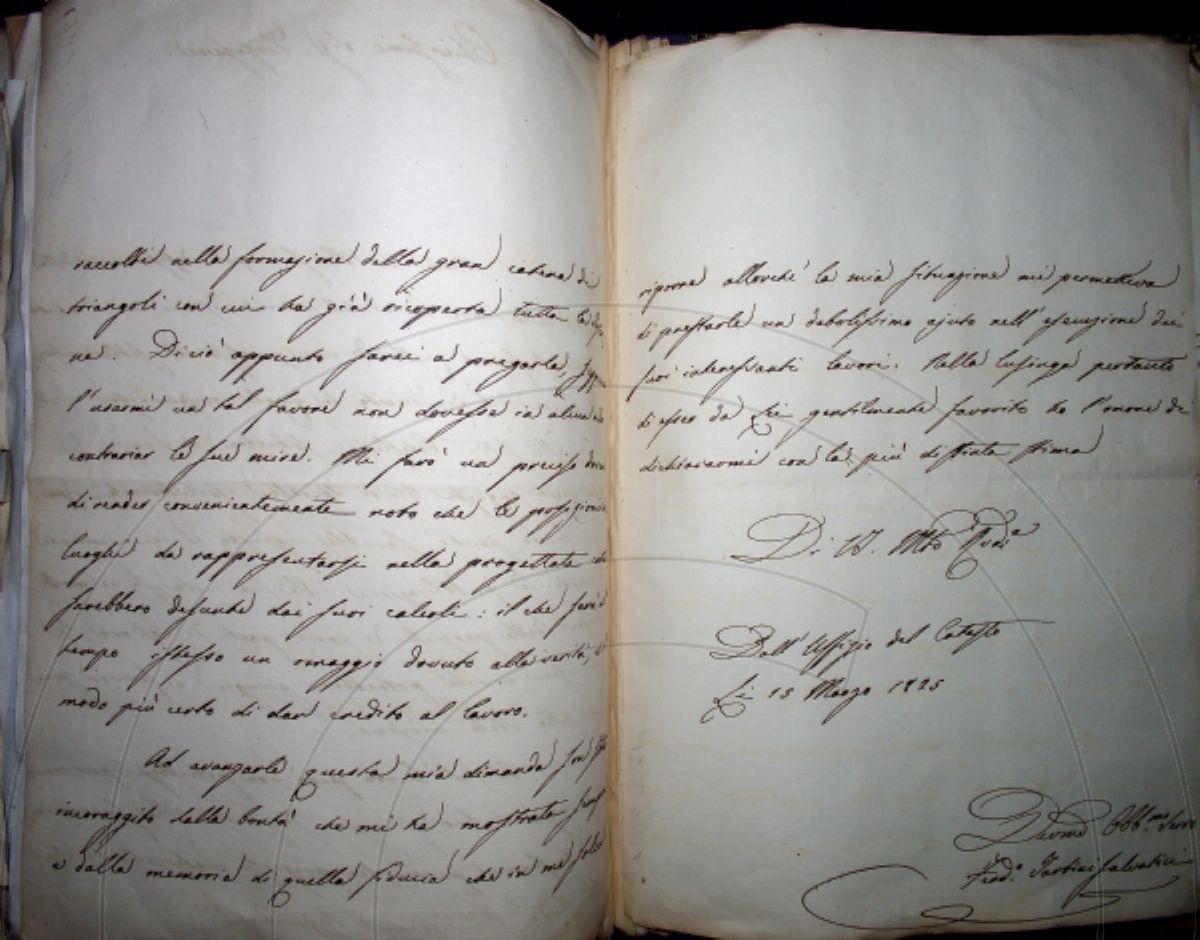 raccolti nella formazione della gran catena di
triangoli con cui ha già ricoperta tutta la
ne. Di ciò appunto sarei a pregarla,
l'usarmi un tal favore non dovesse in alcun
contrariar le sue mire. Mi farò un preciso
di render convenientemente noto che le posizioni
luoghi da rappresentarsi nella progettata
sarebbero desunte dai suoi calcoli: il che sarà
tempo istesso un omaggio dovuto alla verità,
modo più certo di dar credito al lavoro.
Ad avanzarle questa mia dimanda son
incoraggito dalla bontà che mi ha mostrata
e dalla memoria di quella fiducia che in me
riporre allorchè la mia situazione mi permetteva
di prestarle un debolissimo ajuto nell'esecuzione dei
suoi interessanti lavori. Nella lusinga pertanto
di esser da Lei gentilmente favorito ho l'onore di
dichiararmi con la più distinta stima
Di V.
Dall'Uffizio del Catasto
Li 15 Marzo 1825
Devmo Obb.mo Serv
Ferd.o Tartini Salvatici